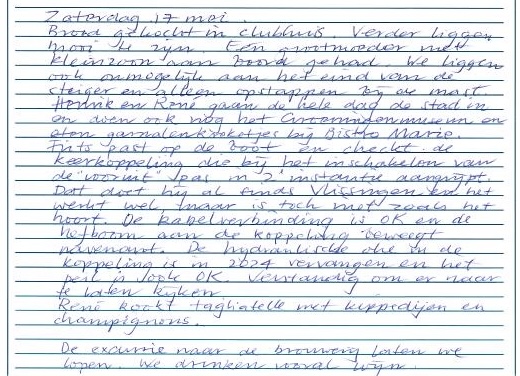 Zaterdag 17 mei.
Brood gekocht in clubhuis. Verder liggen
mooi te zijn. Een grootmoeder met
kleinzoon aan boord gehad. We liggen
ook onmogelijk aan het eind van de
steiger en alleen opstappen bij de mast.
Henrik en René gaan de hele dag de stad in
en doen ook nog het Groeningenmuseum en
eten garnalenkroketjes bij Bistro Marie.
Frits past op de boot en checkt de
keerkoppeling die bij het inschakelen van
de "vooruit" pas in 2e instantie aangrijpt.
Dat doet hij al sinds Vlissingen en het
werkt wel, maar is toch niet zoals het
hoort. De kabelverbinding is OK en de
hefboom aan de koppeling beweegt
navenant. De hydraulische olie in de
koppeling is in 2024 vervangen en het
peil is ook OK. Verstandig om er naar
te laten kijken.
René kookt tagliatelle met kippedijen en
champignons.
De excursie naar de brouwerij laten we
lopen. We drinken vooral wijn.